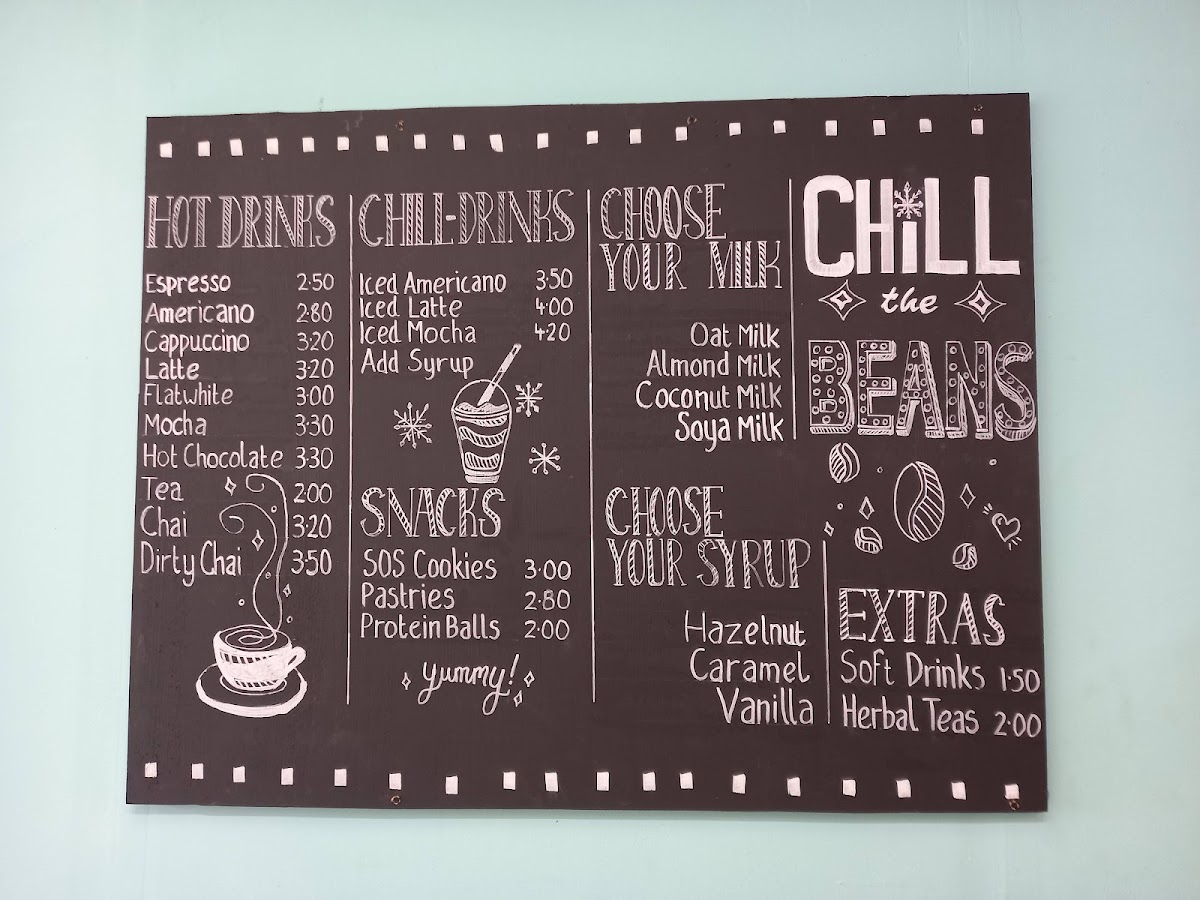 HOT DRINKS
Espresso 2·50
Americano 2·80
Cappuccino 3·20
Latte 3·20
Flatwhite 3·00
Mocha 3·30
Hot Chocolate 3·30
Tea 2·00
Chai 3·20
Dirty Chai 3·50
CHILL-DRINKS
Iced Americano 3·50
Iced Latte 4·00
Iced Mocha 4·20
Add Syrup
SNACKS
SOS Cookies 3·00
Pastries 2·80
Protein Balls 2·00
yummy!
CHOOSE
YOUR MILK
Oat Milk
Almond Milk
Coconut Milk
Soya Milk
CHOOSE
YOUR SYRUP
Hazelnut
Caramel
Vanilla
CHiLL
the
BEANS
EXTRAS
Soft Drinks 1·50
Herbal Teas 2·00